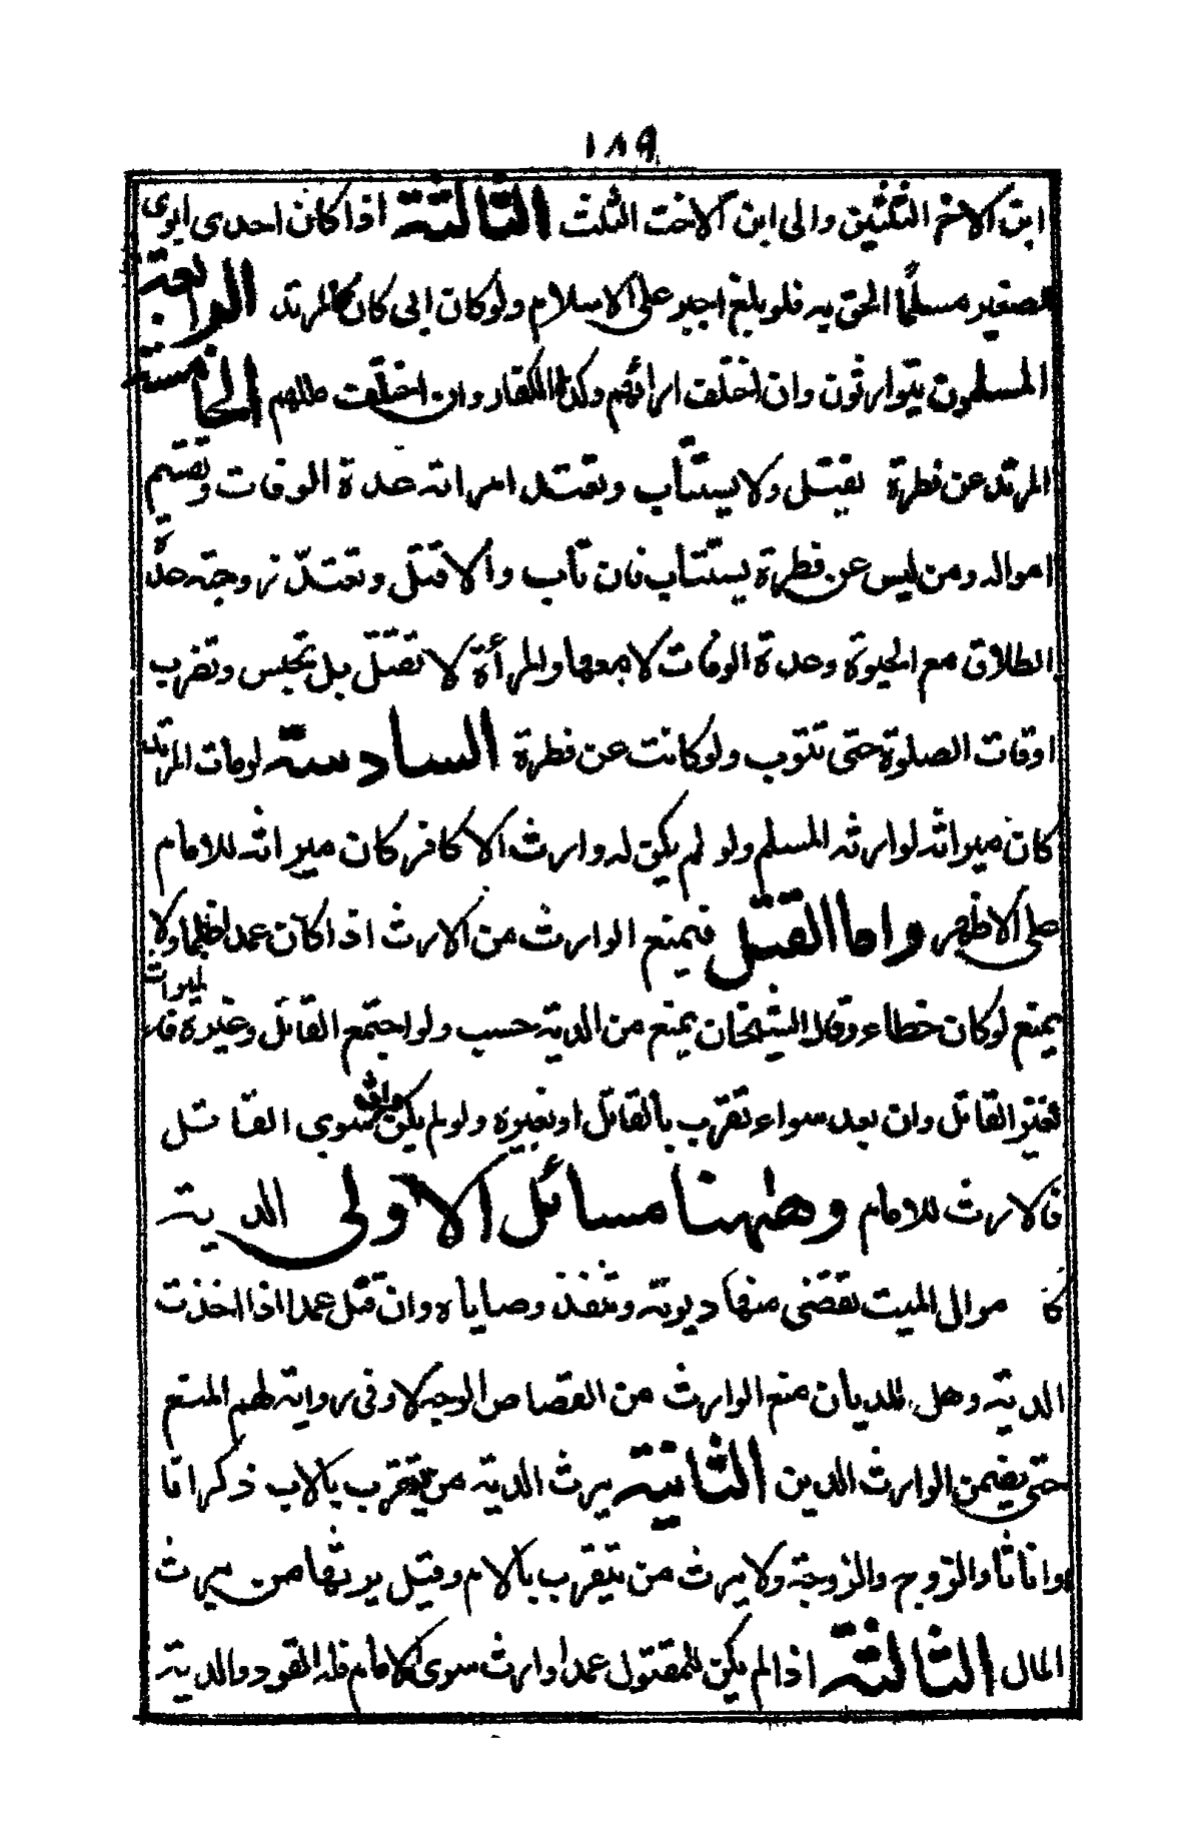 ١٨٩
ابن الاخ الثلثين والى ابن الاخت الثلث الثالثة اذا كان احدى ابوى
الصغير مسلما الحق به فلو بلغ اجبر على الاسلام ولو كان ابى كان كالمرتد الرابعة
المسلمون يتوارثون وان اختلفت ارائهم وكذا الكفار وان اختلفت مللهم الخامسة
المرتد عن فطرة يقتل ولا يستتاب وتعتد امراته عدة الوفات وتقسم
امواله ومن ليس عن فطرة يستتاب فان تاب والا قتل وتعتد زوجته عدة
الطلاق مع الحيوة وعدة الوفات لا معها والمرأة لا تقتل بل تحبس وتضرب
اوقات الصلوة حتى تتوب ولو كانت عن فطرة السادسة لو مات المرتد
كان ميراثه لوارثه المسلم ولو لم يكن له وارث الا كافر كان ميراثه للامام
على الاظهر واما القتل فيمنع الوارث من الارث اذا كان عمدا ظلما ولا
يمنع لو كان خطاء وقال الشيخان يمنع من الدية حسب ولو اجتمع القاتل وغيره فالميراث
لغير القاتل وان بعد سواء تقرب بالقاتل او بغيره ولو لم يكن وارث سوى القاتل
فالارث للامام وههنا مسائل الاولى الدية
كاموال الميت تقضى منها ديونه وتنفذ وصاياه وان قتل عمدا اذا اخذت
الدية وهل للديان منع الوارث من القصاص الوجه لا وفى رواية لهم المنع
حتى يضمن الوارث الدين الثانية يرث الدية من يتقرب بالاب ذكرانا
واناثا والزوج والزوجة ولا يرث من يتقرب بالام وقيل يرثها من يرث
المال الثالثة اذا لم يكن للمقتول عمدا وارث سوى الامام فله القود والدية